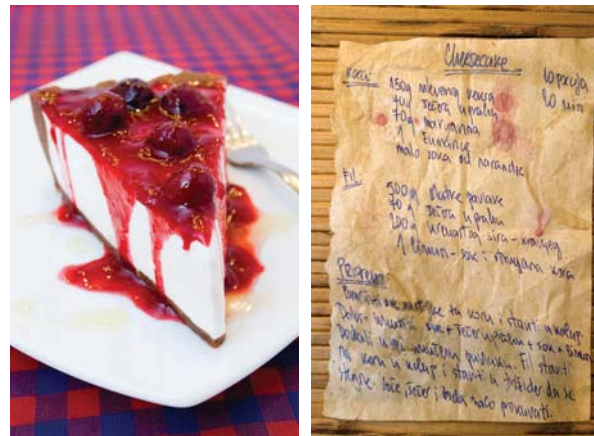 Cheesecake
10 porcija
60 min
Kora:
150g mlevenog keksa
70g šećera u prahu
70g margarina
1 žumance
malo soka od narandže
Fil:
500g slatke pavlake
70g šećera u prahu
200g kremastog sira - kravljeg
1 limun - sok i strugana kora
Priprema:
za koru i staviti u kalup.
Dobro umutiti sir + šećer u prahu + sok + limun
Dodati u umućenu pavlaku. Fil staviti
na koru u kalup i staviti u frižider da se
stegne. šećer i malo prokuvati.